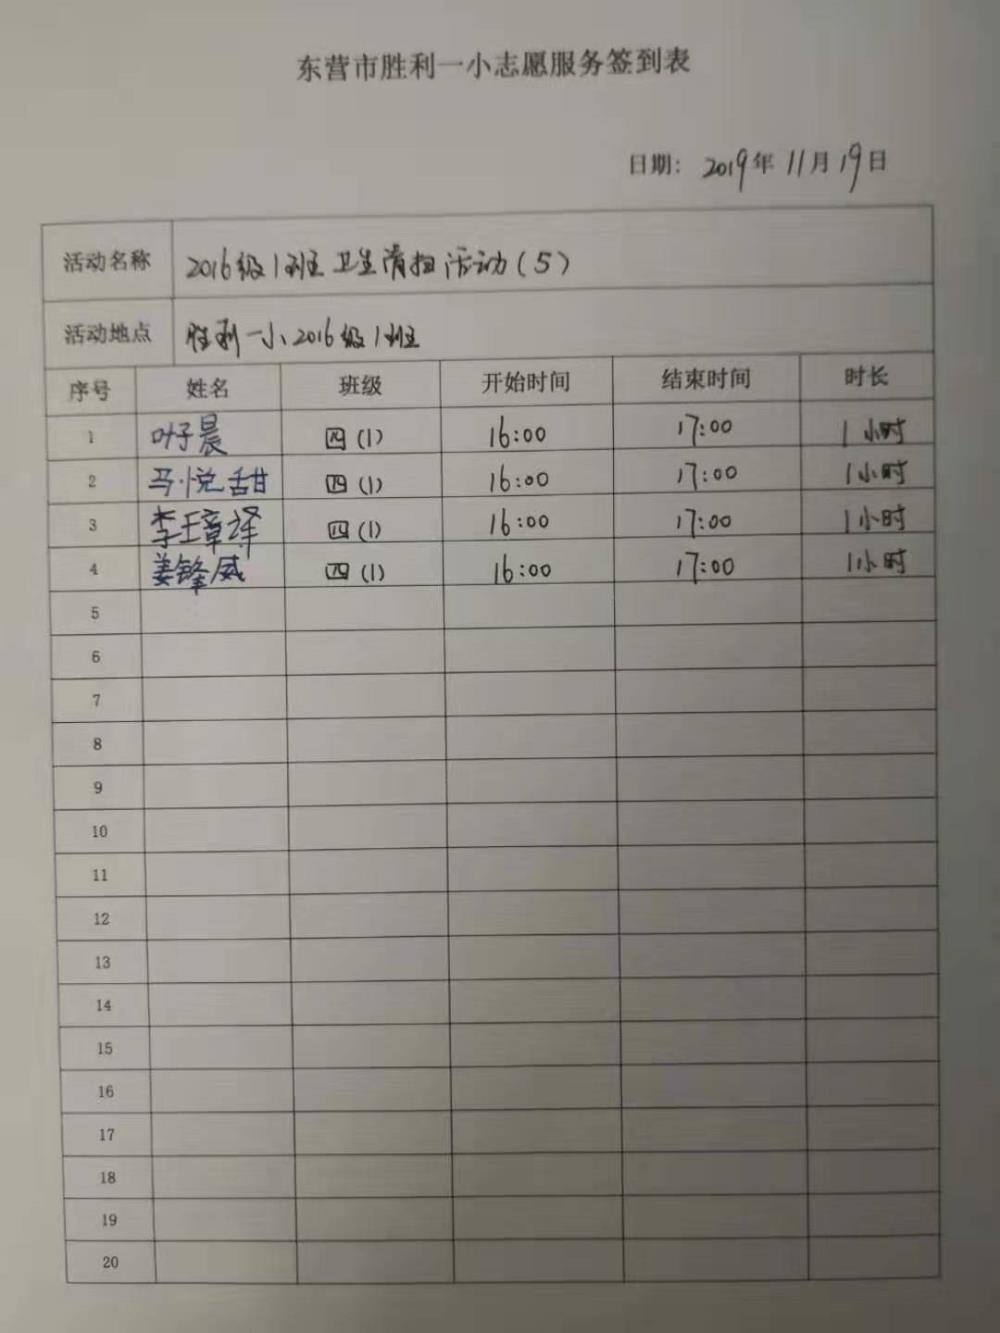 东营市胜利一小志愿服务签到表
日期: 2019年 11月 19日
活动名称 2016级1班卫生清扫活动(5)
活动地点 胜利一小2016级1班
序号 姓名 班级 开始时间 结束时间 时长
1 叶子晨 四(1) 16:00 17:00 1小时
2 马悦甜 四(1) 16:00 17:00 1小时
3 李王章译 四(1) 16:00 17:00 1小时
4 姜锋威 四(1) 16:00 17:00 1小时
5
6
7
8
9
10
11
12
13
14
15
16
17
18
19
20